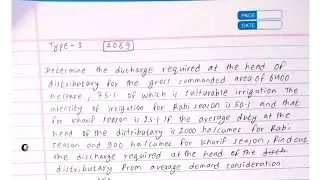 PAGE
DATE
Type-1 2069
Determine the discharge required at the head of
distributary for the gross commanded area of 6400
hectare, 75.1. of which is culturable irrigation. The
intensity of irrigation for Rabi season is 50.1. and that
for kharif season is 25.1. If the average duty at the
head of the distributary is 2000 ha/cumec for Rabi
season and 900 ha/cumec for kharif season, find out
the discharge required at the head of the
distributary from average demand consideration